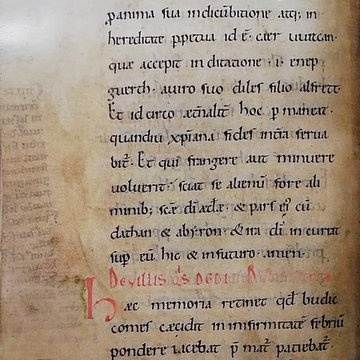 panima sua indicubitione atq; in
hereditate ppetua id ē. caer uuiucan.
quæ accepit in ditatione .i. enep
guerth. a uiro suo diles filio alfrett.
Et id circo æt̄nalit̄ hoc p maneat.
quandiu xp̄iana fides in t̄ra serua
bit̄. Et qui frangere aut minuere
voluerit. sciat se alienū fore ali
minib; scæ dī æcl̄æ. & pars ei cū
dathan & abyron & ira dī in currat
sup eū hic & infuturo. amen.
De villis
Hæc memoria retinet qđ budic
comes cæcidit in infirmitatē febriū
pondere iacebat p mat̄ patiebat̄.